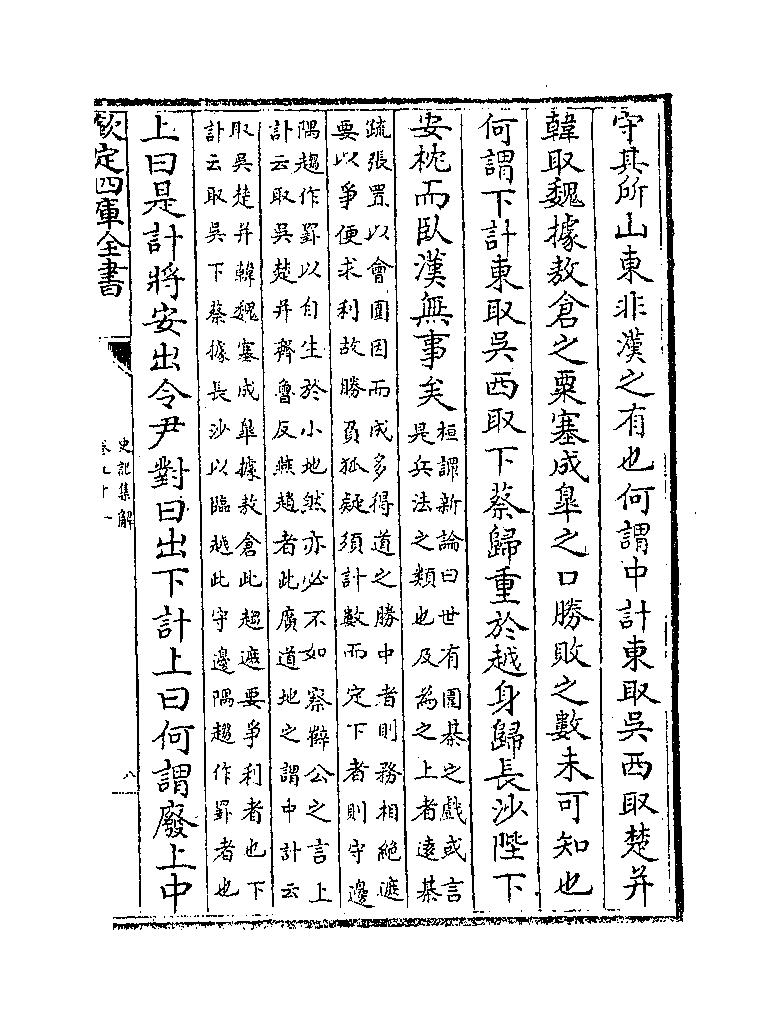 守其所山東非漢之有也何謂中計東取吳西取楚并
韓取魏據敖倉之粟塞成臯之口勝敗之數未可知也
何謂下計東取吳西取下蔡歸重於越身歸長沙陛下
安枕而臥漢無事矣
桓譚新論曰世有圍棊之戲或言
是兵法之類也及為之上者逺棊
疏張置以會圍因而成多得道之勝中者則務相絶遮
要以爭便求利故勝負狐疑須計數而定下者則守邊
隅趨作罫以自生於小地然亦必不如察薛公之言上
計云取吳楚并齊魯反燕趙者此廣道地之謂中計云
取吳楚并韓魏塞成臯據敖倉此趨遮要爭利者也下
計云取吳下蔡據長沙以臨越此守邊隅趨作罫者也
上曰是計將安出令尹對曰出下計上曰何謂廢上中
欽定四庫全書
史記集解
卷九十一
八